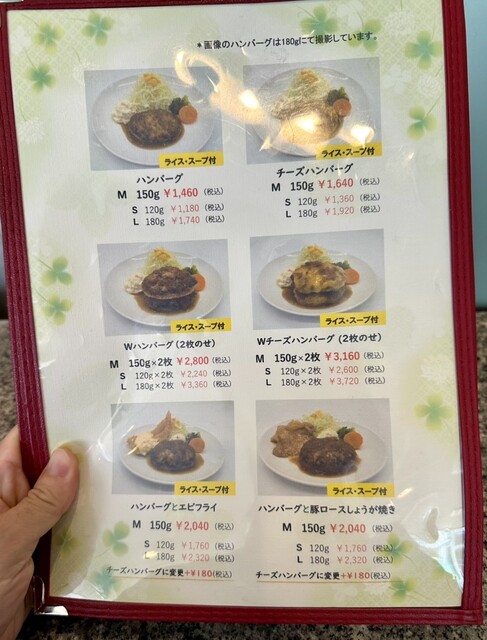 ＊画像のハンバーグは180gにて撮影しています。
ライス・スープ付
ハンバーグ
M 150g ￥1,460 (税込)
S 120g ￥1,180 (税込)
L 180g ￥1,740 (税込)
ライス・スープ付
チーズハンバーグ
M 150g ￥1,640 (税込)
S 120g ￥1,360 (税込)
L 180g ￥1,920 (税込)
ライス・スープ付
Wハンバーグ (2枚のせ)
M 150g×2枚 ￥2,800 (税込)
S 120g×2枚 ￥2,240 (税込)
L 180g×2枚 ￥3,360 (税込)
ライス・スープ付
Wチーズハンバーグ (2枚のせ)
M 150g×2枚 ￥3,160 (税込)
S 120g×2枚 ￥2,600 (税込)
L 180g×2枚 ￥3,720 (税込)
ライス・スープ付
ハンバーグとエビフライ
M 150g ￥2,040 (税込)
S 120g ￥1,760 (税込)
L 180g ￥2,320 (税込)
チーズハンバーグに変更+￥180(税込)
ライス・スープ付
ハンバーグと豚ロースしょうが焼き
M 150g ￥2,040 (税込)
S 120g ￥1,760 (税込)
L 180g ￥2,320 (税込)
チーズハンバーグに変更+￥180(税込)